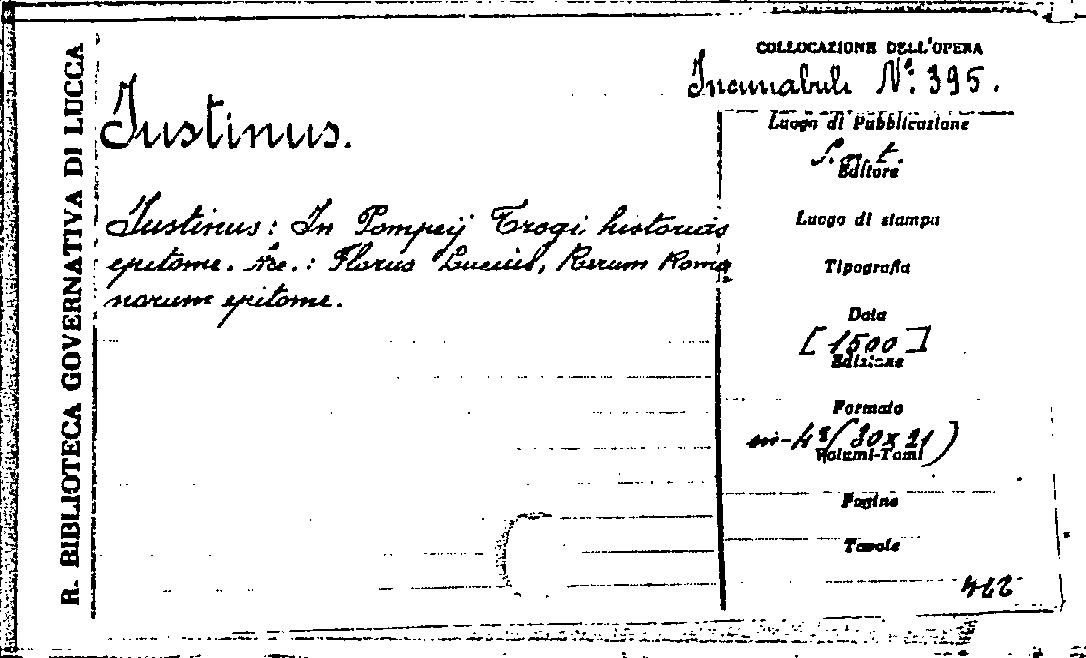 R. BIBLIOTECA GOVERNATIVA DI LUCCA
Justinus.
Justinus: In Pompeij Trogi historias
epitome. &c.: Florus Lucius, Rerum Roma
norum epitome.
COLLOCAZIONE DELL'OPERA
Incunabuli N.° 395.
Luogo di Pubblicazione
S. n. t.
Editore
Luogo di stampa
Tipografia
Data
[1500]
Edizione
Formato
in-4° (30x21)
Volumi-Tomi
Pagine
Tavole